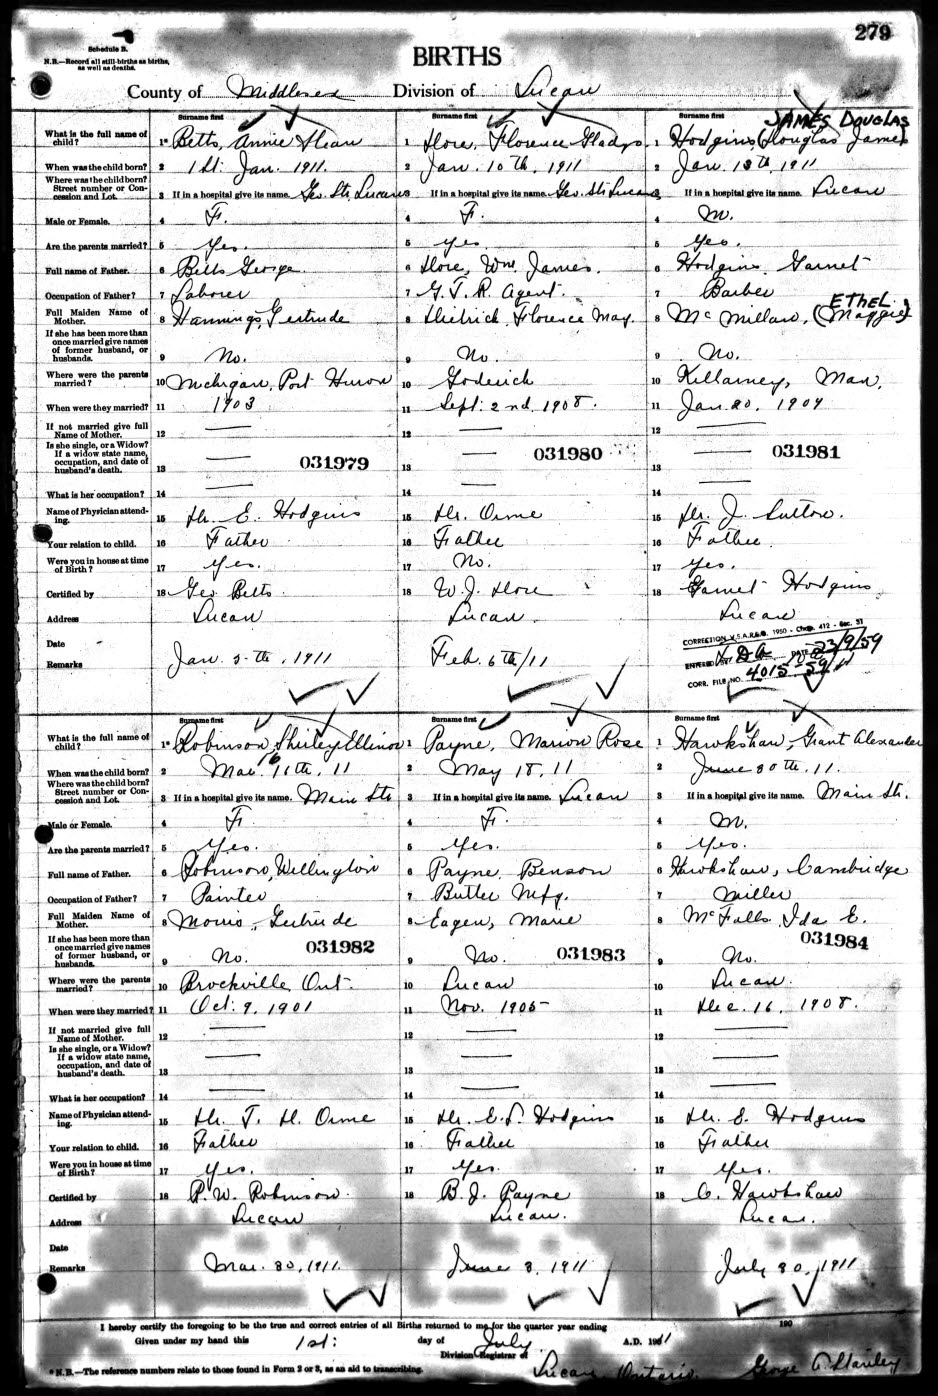 279
Schedule B.
N.B.—Record all still-births as births, as well as deaths.
BIRTHS
County of Middlesex Division of Lucan
Surname first Surname first Surname first JAMES DOUGLAS
What is the full name of child? 1* Betts, Annie 1 Florence Gladys 1 Hodgins (Douglas James)
When was the child born? 2 1st. Jan. 1911. 2 Jan. 10th, 1911 2 Jan. 13th, 1911
Where was the child born? Street number or Concession and Lot. 3 If in a hospital give its name. Geo. St. Lucan 3 If in a hospital give its name. Geo. St. Lucan 3 If in a hospital give its name. Lucan
Male or Female. 4 F. 4 F. 4 M.
Are the parents married? 5 Yes. 5 Yes 5 Yes.
Full name of Father. 6 Betts George 6 Wm. James. 6 Hodgins, Garnet
Occupation of Father? 7 Laborer 7 G.T.R. Agent. 7 Barber
Full Maiden Name of Mother. 8 Hannings Gertrude 8 Dietrich Florence May. 8 McMillan, (Maggie) ETHEL
If she has been more than once married give names of former husband, or husbands. 9 No. 9 No. 9 No.
Where were the parents married? 10 Michigan, Port Huron 10 Goderich 10 Killarney, Man.
When were they married? 11 1903 11 Sept. 2nd, 1908. 11 Jan. 20, 1904
If not married give full Name of Mother. 12 — 12 — 12 —
Is she single, or a Widow? If a widow state name, occupation, and date of husband's death. 13 — 031979 13 — 031980 13 — 031981
What is her occupation? 14 — 14 — 14 —
Name of Physician attending. 15 Dr. E. Hodgins 15 Dr. Orme 15 Dr. J. Sutton.
Your relation to child. 16 Father 16 Father 16 Father.
Were you in house at time of Birth? 17 Yes. 17 No. 17 Yes.
Certified by 18 Geo Betts. 18 W. J. 18 Garnet Hodgins
Address Lucan Lucan. Lucan
Date
CORRECTION V.S.A.R.S.O. 1950 - Chap. 412 - Sec. 31
ENTERED BY DATE 23/9/59
CORR. FILE NO. 4015-59
Remarks Jan. 5th, 1911 Feb. 6th/11
Surname first Surname first Surname first
What is the full name of child? 1* Robinson, Shirley Ellinor 1 Payne, Marion Rose 1 Hawkshaw, Grant Alexander
When was the child born? 2 Mar. 11th, 11 16 2 May 18, 11 2 June 30th, 11.
Where was the child born? Street number or Concession and Lot. 3 If in a hospital give its name. Main St. 3 If in a hospital give its name. Lucan 3 If in a hospital give its name. Main St.
Male or Female. 4 F. 4 F. 4 M.
Are the parents married? 5 Yes. 5 Yes. 5 Yes.
Full name of Father. 6 Robinson, Wellington 6 Payne, Benson 6 Hawkshaw, Cambridge
Occupation of Father? 7 Painter 7 Butter Mfg. 7 Miller
Full Maiden Name of Mother. 8 Morris, Gertrude 8 Eagen, Marie 8 McFalls Ida E.
If she has been more than once married give names of former husband, or husbands. 9 No. 031982 9 No. 031983 9 No. 031984
Where were the parents married? 10 Brockville, Ont. 10 Lucan 10 Lucan.
When were they married? 11 Oct. 9, 1901 11 Nov. 1905 11 Dec. 16, 1908.
If not married give full Name of Mother. 12 — 12 — 12 —
Is she single, or a Widow? If a widow state name, occupation, and date of husband's death. 13 — 13 — 13 —
What is her occupation? 14 — 14 — 14 —
Name of Physician attending. 15 Dr. T. H. Orme 15 Dr. E. Hodgins 15 Dr. E. Hodgins
Your relation to child. 16 Father 16 Father 16 Father
Were you in house at time of Birth? 17 Yes. 17 Yes. 17 Yes.
Certified by 18 R. W. Robinson. 18 B. J. Payne 18 C. Hawkshaw
Address Lucan Lucan. Lucan.
Date
Remarks Mar. 30, 1911. June 3, 1911 July 30, 1911
I hereby certify the foregoing to be the true and correct entries of all Births returned to me for the quarter year ending 190
Given under my hand this 1st. day of July A.D. 1911
Division Registrar of Lucan, Ontario. George A. Stanley
* N.B.—The reference numbers relate to those found in Form 2 or 3, as an aid to transcribing.